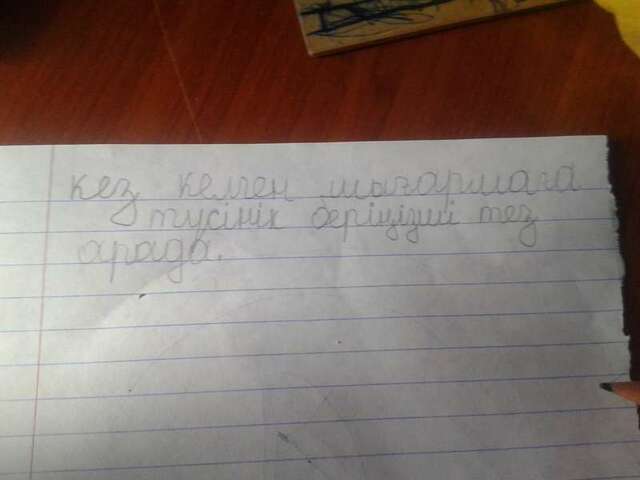 кез келген шығармаға
түсінік беріңізші тез
арада.